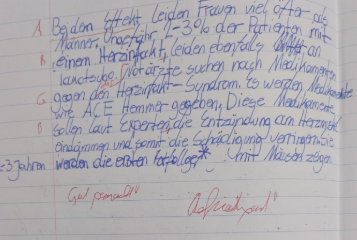 A Bei dem Effekt leiden Frauen viel öfter als
Männer. Ungefähr 2-3% der Patienten mit
B einem Herzinfarkt, leiden ebenfalls öfter an
Notärzte suchen nach Medikamenten
C gegen den Herzinfarkt-Syndrom. Es werden Medikamente
wie ACE Hemmer gegeben, Diese Medikamente
D sollen laut Experten die Entzündung am Herzmuskel
eindämmen und somit die Schädigung verringern. Sie
werden die ersten mit Mäusen zeigen
3 Jahren
Gut gemacht